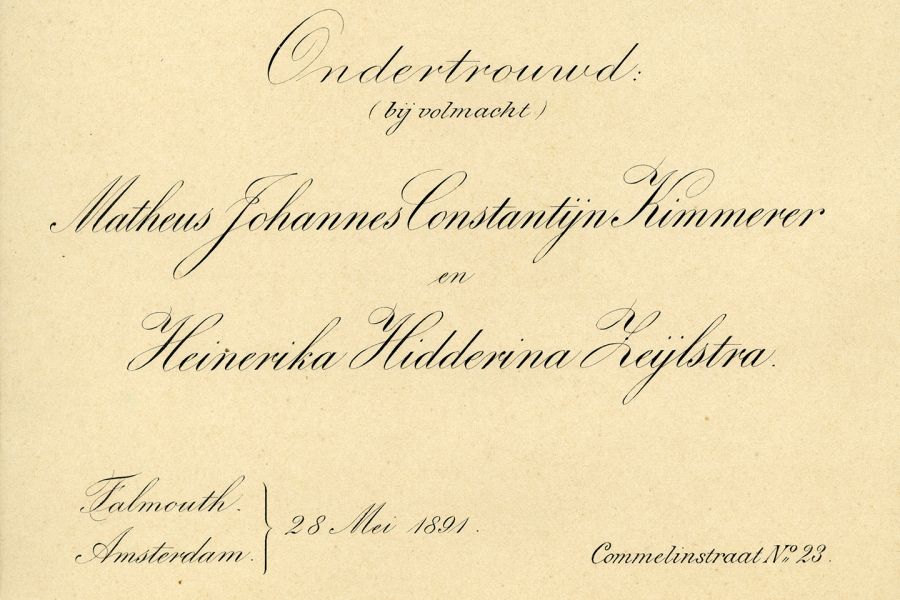 Ondertrouwd:
(bij volmacht)
Matheus Johannes Constantijn Kimmerer
en
Heinerika Hidderina Zeijlstra.
Falmouth.
Amsterdam.
28 Mei 1891.
Commelinstraat No. 23.